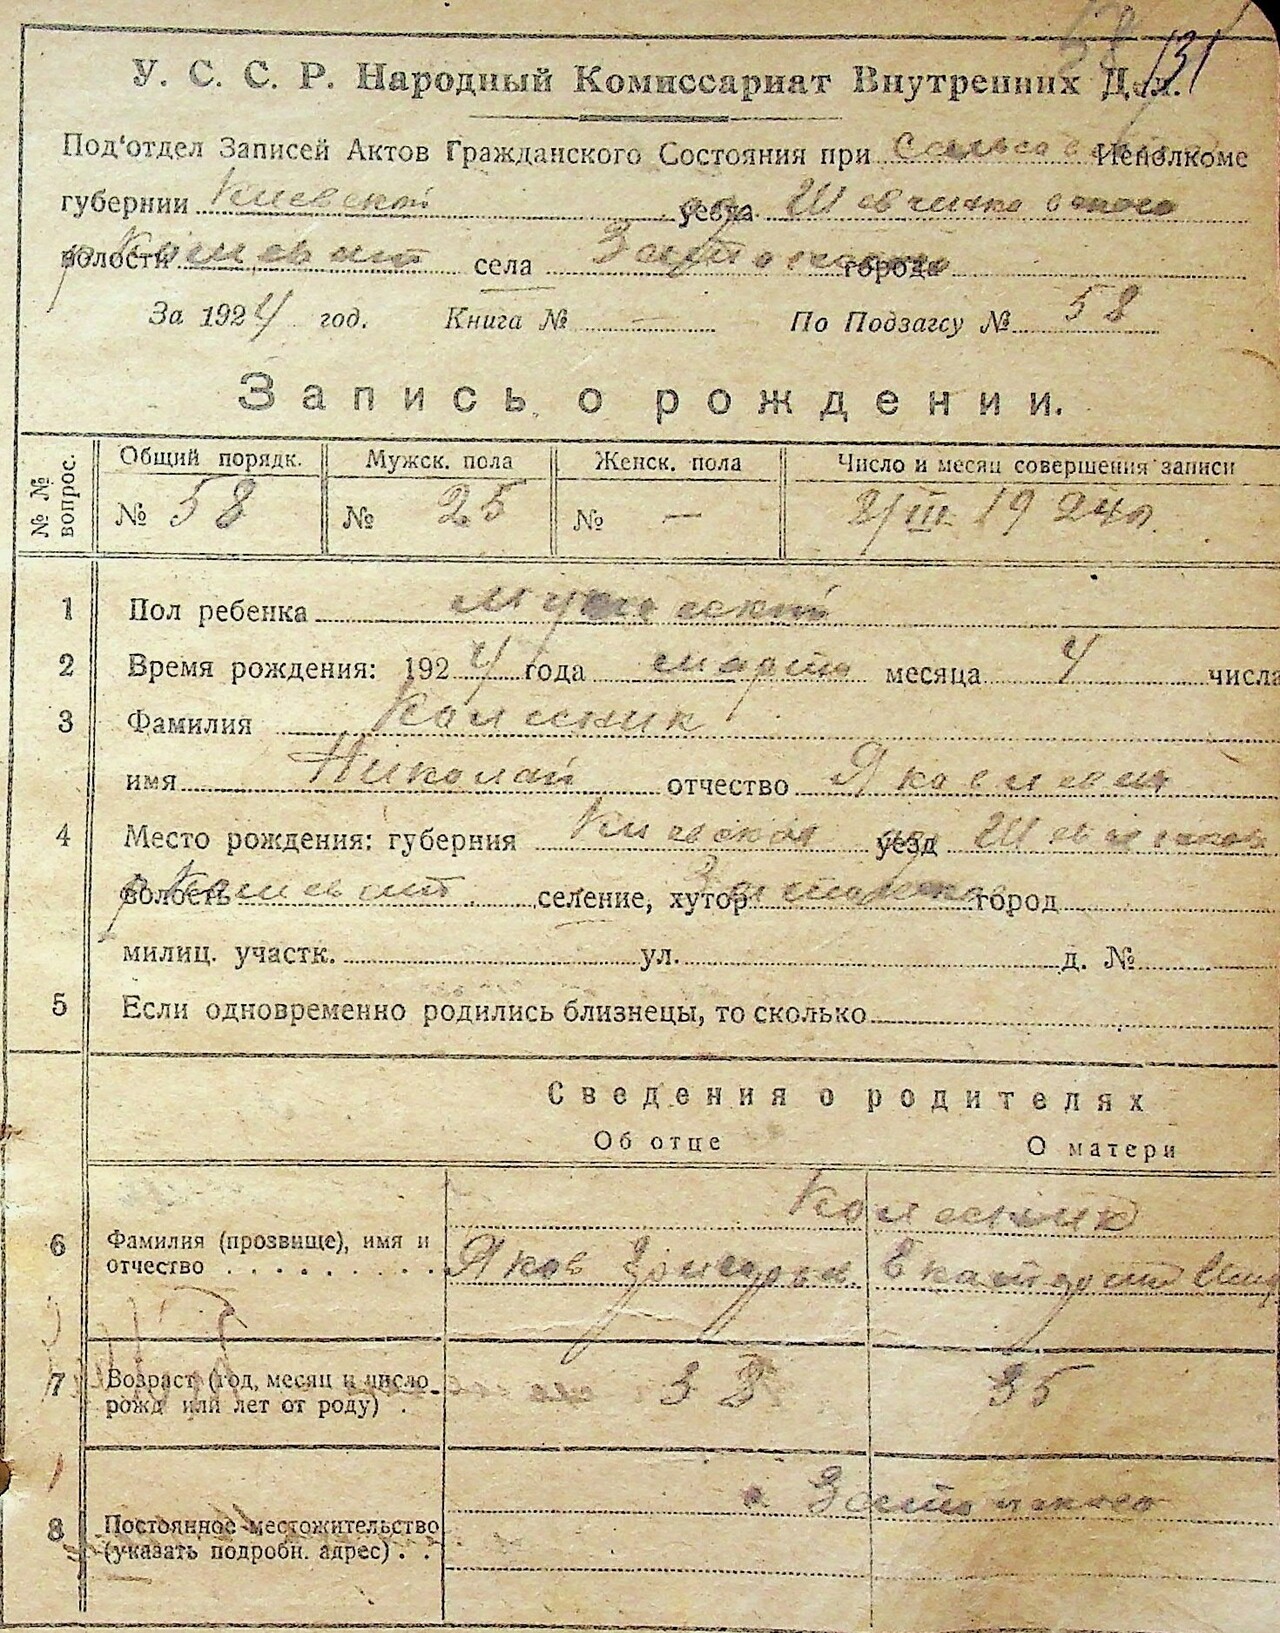 58 131
У. С. С. Р. Народный Комиссариат Внутренних Дел.
Под'отдел Записей Актов Гражданского Состояния при Исполкоме
губернии Киевской уезда
волости села города
За 1924 год. Книга № — По Подзагсу № 58
Запись о рождении.
№ № вопрос. Общий порядк. Мужск. пола Женск. пола Число и месяц совершения записи
№ 58 № 25 № — 8/III 1924
1 Пол ребенка мужеский
2 Время рождения: 1924 года марта месяца 4 числа
3 Фамилия Колесник
имя Николай отчество Яковлевич
4 Место рождения: губерния Киевская уезд
волость селение, хутор город
милиц. участк. ул. д. №
5 Если одновременно родились близнецы, то сколько
Сведения о родителях
Об отце О матери
Колесник
6 Фамилия (прозвище), имя и
отчество . . . . . . . . . Яков Григорьев
7 Возраст (год, месяц и число
рожд или лет от роду) . 38 35
8 Постоянное местожительство
(указать подробн. адрес) . .